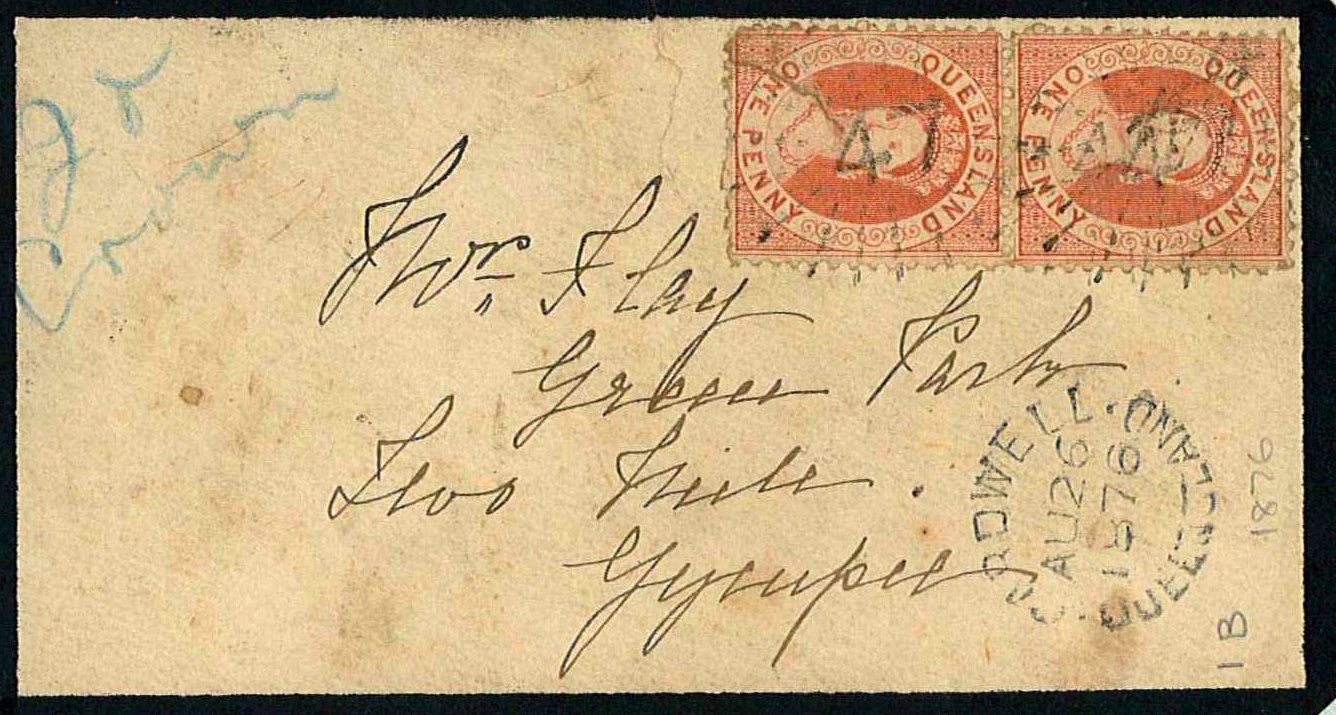 QUEENSLAND
ONE PENNY
47
QUEENSLAND
ONE PENNY
Mr. Flay
Green Park
Two Mile.
Gympie
CARDWELL · QUEENSLAND
AU 26
1876
1876
1B